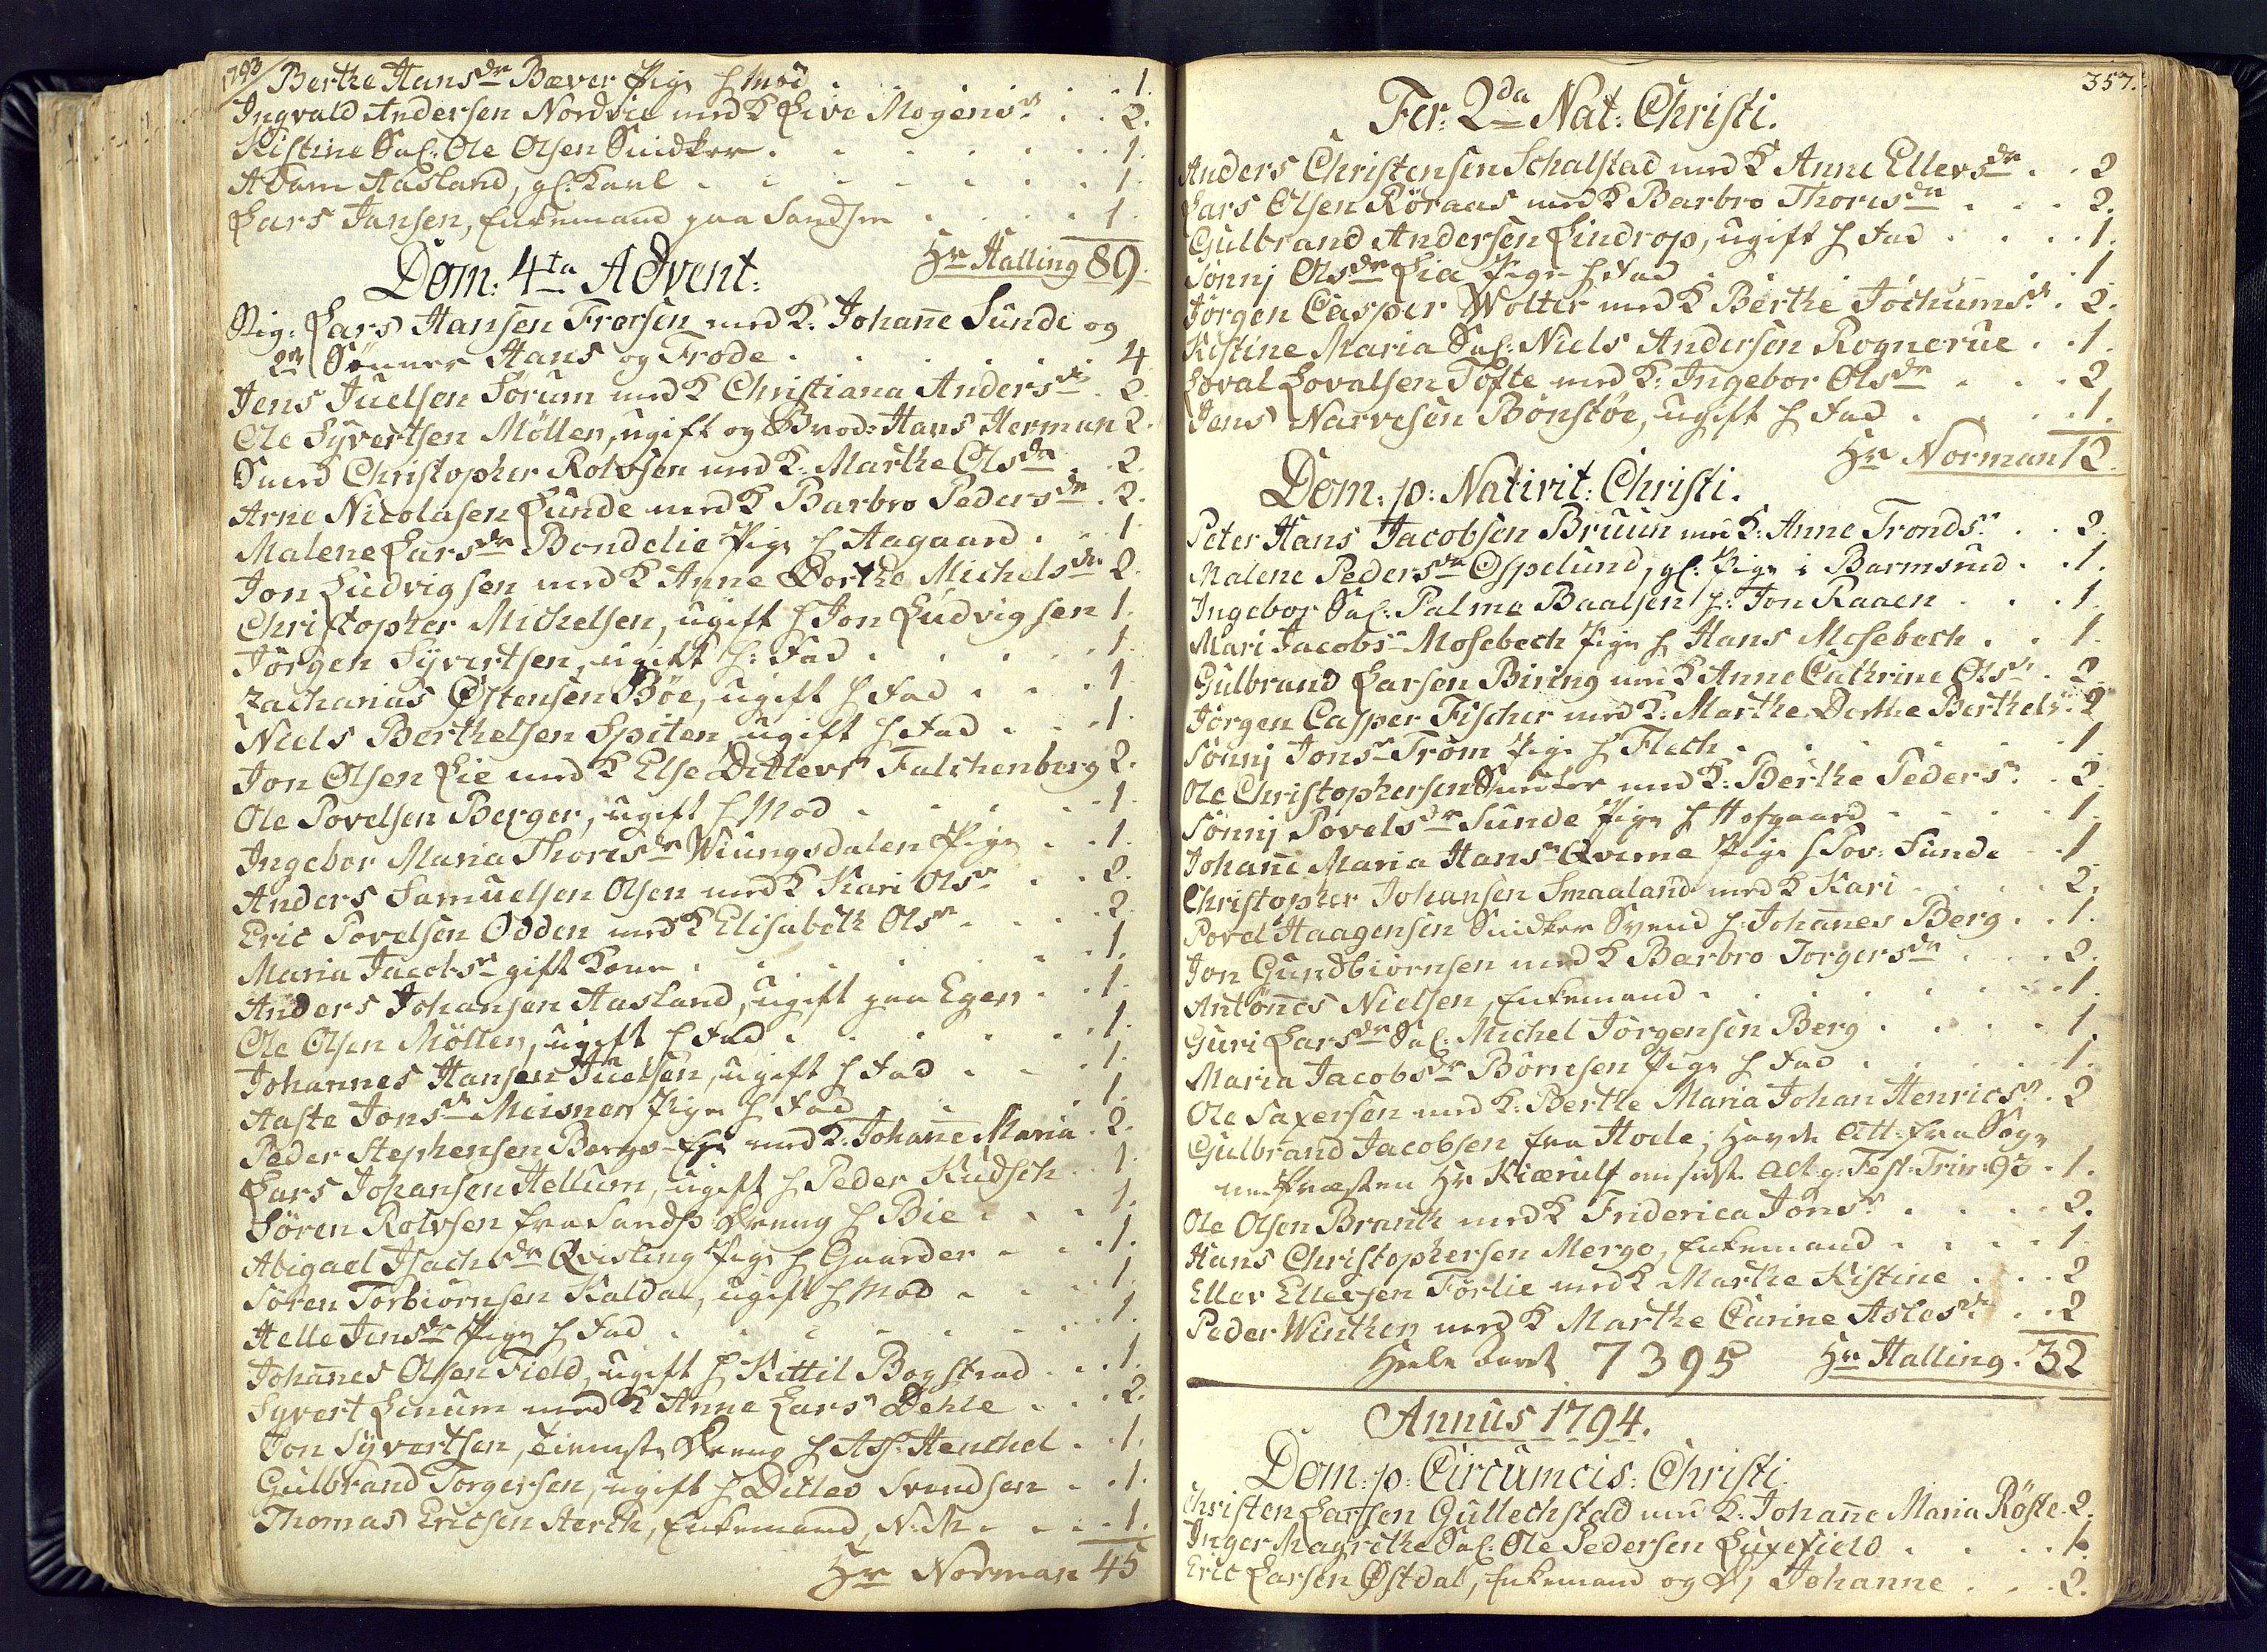 1793
Berthe Hansdr Bæver Pige h Mod . . . . . 1.
Ingvald Andersen Nordvie med K Live Mogensdr . . 2.
Kistine Sal. Ole Olsen Snidker . . . . . 1.
Adam Aasland, gl. Karl . . . . . 1.
Lars Jansen, Enkemand paa Sandsm . . . . 1.
Hr Halling 89.
Dom: 4ta Advent:
Sig: Lars Hansen Frørsen med K. Johane Sunde og
2n Sønner Hans og Frode . . . . . 4
Jens Juelsen Sørum med K Christiana Andersdr . 2.
Ole Syvertsen Möllen, ugift og Brod: Hans Herman 2.
Smed Christopher Rolvsen med K. Marthe Olsdr . 2.
Arne Nicolasen Lunde med K Barbro Pedersdr . 2.
Malene Larsdr Bondelie Pige h Aagaard . . 1
Jon Ludvigsen med K Anne Dorthe Michelsdr 2.
Christopher Michelsen, ugift h Jon Ludvigsen 1.
Jörgen Syvertsen, ugift h: Fad . . . . 1.
Zacharias Østensen Böe, ugift h Fad . . . 1.
Niels Berthelsen Spiten ugift h Fad . . . 1.
Jon Olsen Lie med K Else Ditlevsr Falchenberg 2.
Ole Povelsen Berger, ugift h Mod . . . . 1.
Ingebor Maria Thoresdr Wiungsdalen Pige . . 1.
Anders Samuelsen Olsen med K Kari Olsdr . . 2.
Eric Povelsen Odden med K Elisabeth Olsdr . . 2.
Maria Jacobsdr gift Kone . . . . . 1.
Anders Johansen Aasland, ugift paa Egen . . 1.
Ole Olsen Möllen, ugift h Fad . . . . 1.
Johannes Hansen Juelsen, ugift h Fad . . . 1.
Aaste Jonsdr Meisner Pige h Fad . . . 1.
Peder Stephensen Bergs-Eje med K. Johane Maria . 2.
Lars Johansen Hellum, ugift h Peder Kudsch . 1.
Sören Rolvsen fra Sandsv Dreng h Bie . . . 1.
Abigael Isachsdr Qvisling Pige h Gaarder . . 1.
Sören Torbiörnsen Kaldal, ugift h Mod . . . 1.
Helle Jensdr Pige h Fad . . . . . 1.
Johanes Olsen Field, ugift h Kittil Bogstrud . . 1.
Syvert Linum med K Anne Larsr Dehle . . 2.
Jon Syvertsen, Tieneste Dreng h Ass: Henchel . . 1.
Gulbrand Torgersen, ugift h Ditlev Svendsen . . 1.
Thomas Ericsen Sterth, Enkemand, N: M . . . 1.
Hr Norman 45
357.
Fer: 2da Nat: Christi.
Anders Christensen Schalstad med K Anne Ellevsdr . . 2
Lars Olsen Röraas med K Barbro Thoresdr . . . 2.
Gulbrand Andersen Lindrop, ugift h Fad . . . 1.
Sønnj Olsdr Lia Pige h Fad . . . . 1
Jörgen Casper Wolter med K Berthe Jochumsdr . 2.
Kistine Maria Sal: Niels Andersen Rognerue . . 1.
Loval Lovalsen Tofte med K: Ingebor Olsdr . . . 2
Jens Narvesen Bönstöe, ugift h Fad . . . . 1.
Hr Norman 12.
Dom: p: Nativit: Christi.
Peter Hans Jacobsen Bruun med K: Anne Trondsr . . 2.
Malene Pedersdr Ospelund, gl: Pige i Barmsrud . . 1.
Ingebor Sal: Palme Baalsen h: Jon Raaen . . . 1.
Mari Jacobsr Mosebech Pige h Hans Mosebech . . 1.
Gulbrand Larsen Biring med K Anne Cathrine Olsdr . 2.
Jörgen Casper Fischer med K: Marthe Dorthe Berthelsr . 2
Sønnj Jonsr Tröm Pige h Flech . . . . 1
Ole Christophersen Smeder med K: Berthe Pedersr . . 2
Sønnj Povelsdr Sunde Pige h Hofgaard . . . . 1.
Johane Maria Hansr Qverne Pige h Pov: Sunde . . 1
Christopher Johansen Smaaland med K Kari . . . 2.
Povel Haagensen Snidker Svend h: Johanes Berg . . 1.
Jon Gundbiörnsen med K Barbro Torgersdr . . . 2.
Antönes Nielsen, Enkemand . . . . . 1.
Guri Larsdr Sal: Michel Jörgensen Berg . . . . 1.
Maria Jacobsdr Börnsen Pige h Fad . . . . 1.
Ole Saxersen med K: Berthe Maria Johan Henricsr . 2
Gulbrand Jacobsen fra Hole; havde Att: fra Sogne
Præsten Hr Kiærulf om sidste Act p: Fest: Trin: 93 . 1.
Ole Olsen Branth med K Friderica Jonsr . . . . 2.
Hans Christophersen Mergo, Enkemand . . . . 1.
Ellev Ellevsen Forlie med K Marthe Kistine . . . 2
Peder Winther med K Marthe Carine Aslesdr . . 2
Heele Aaret 7395 Hr Halling. 32
Annus 1794.
Dom: p: Circumcis: Christi.
Christen Larssen Gullechstad med K. Johane Maria Röste . 2.
Inger Magrethe Sal: Ole Pedersen Luxefield . . . 1.
Eric Larsen Østdal, Enkemand og Dj Johanne . . . 2.